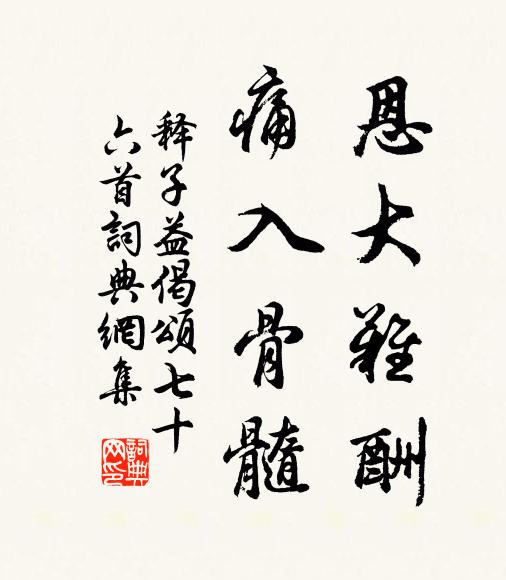 恩大難酬
痛入骨髓
釋子益偈頌七十
六首詞典網集
詞典
网印